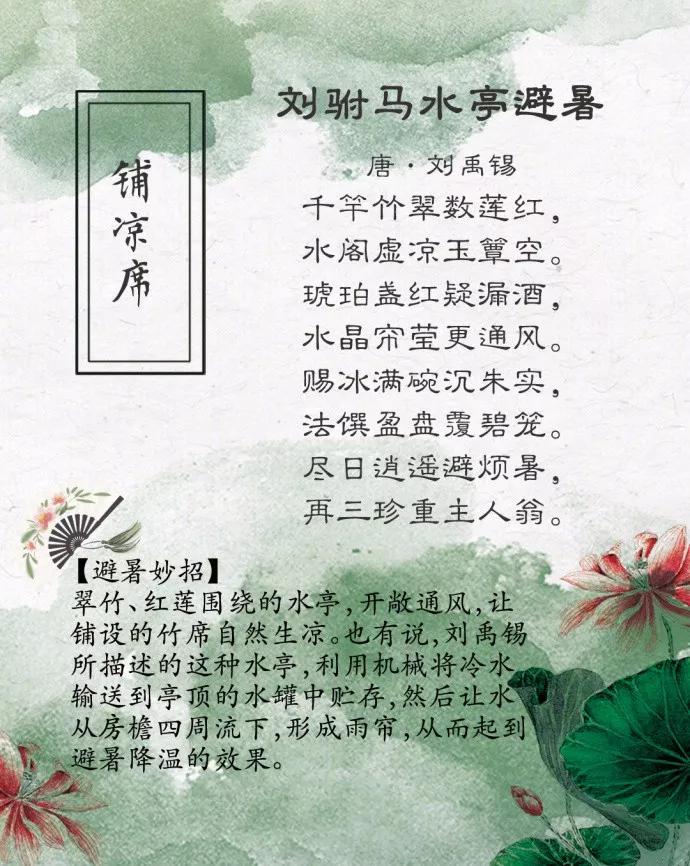 铺凉席
刘驸马水亭避暑
唐·刘禹锡
千竿竹翠数莲红，
水阁虚凉玉簟空。
琥珀盏红疑漏酒，
水晶帘莹更通风。
赐冰满碗沉朱实，
法馔盈盘覆碧笼。
尽日逍遥避烦暑，
再三珍重主人翁。
【避暑妙招】
翠竹、红莲围绕的水亭，开敞通风，让
铺设的竹席自然生凉。也有说，刘禹锡
所描述的这种水亭，利用机械将冷水
输送到亭顶的水罐中贮存，然后让水
从房檐四周流下，形成雨帘，从而起到
避暑降温的效果。